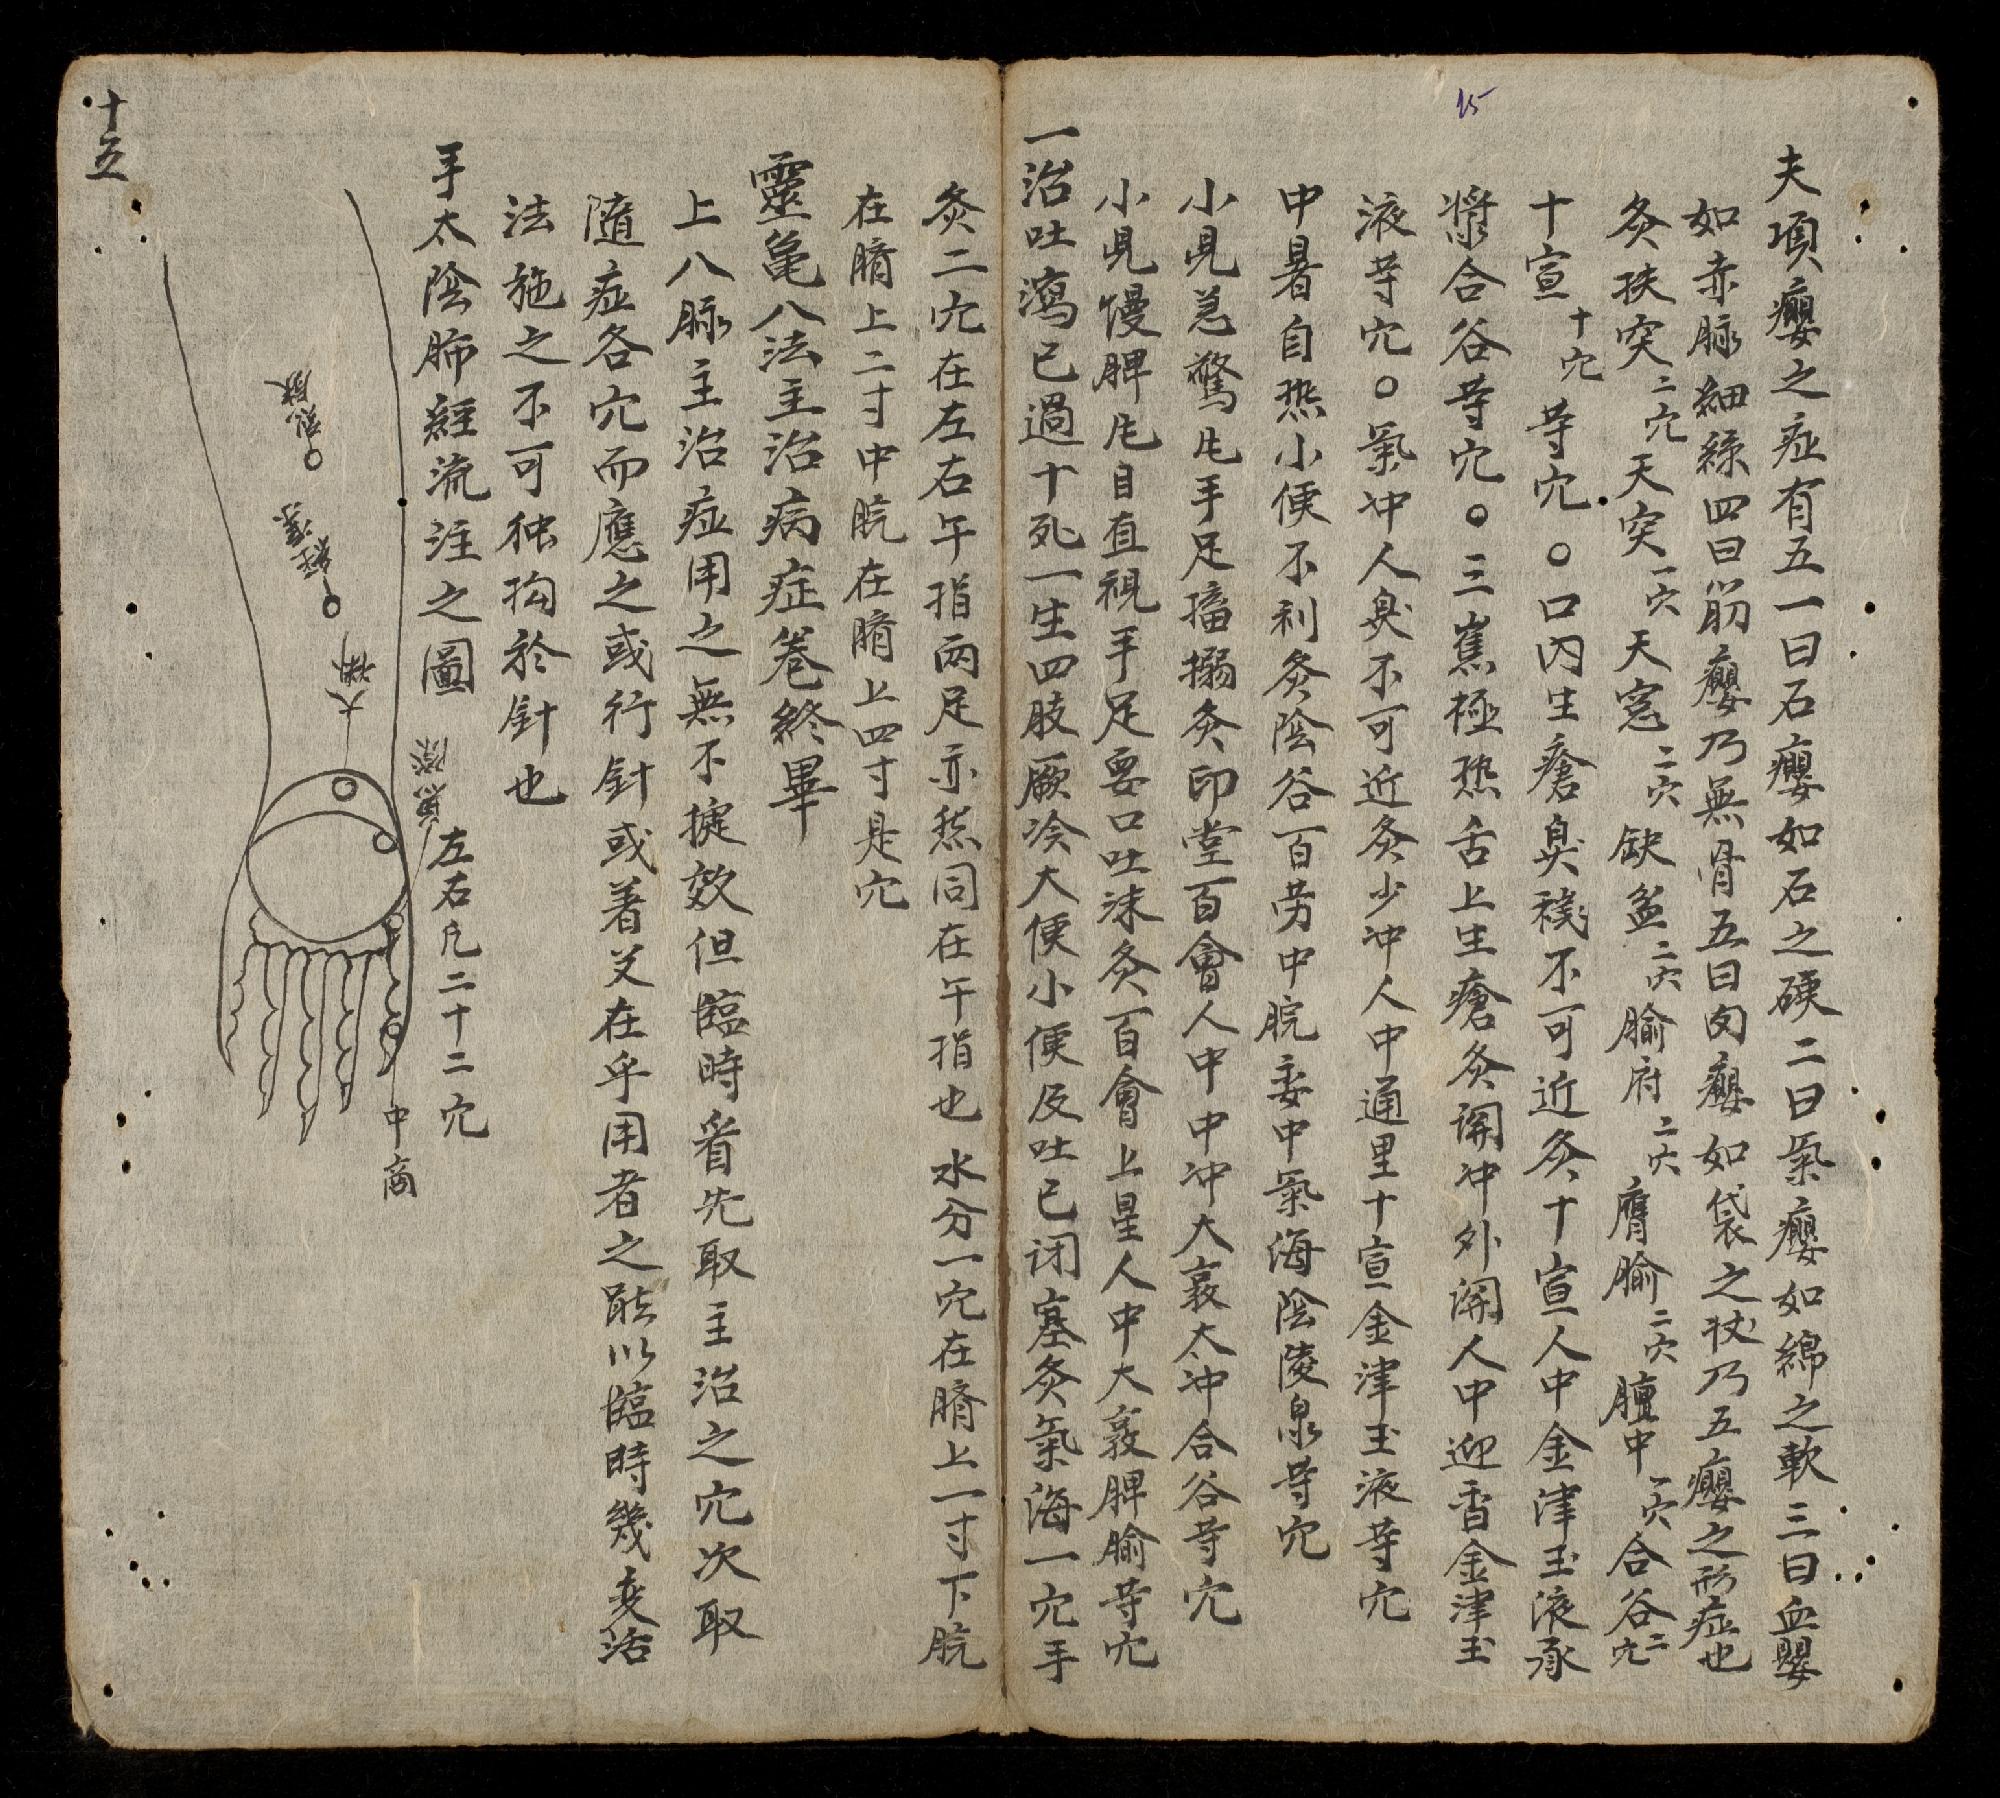 15
夫項癭之症有五一曰石癭如石之硬二曰氣癭如綿之軟三曰血嬰
如赤脉細絲四曰筋癭乃無骨五曰肉癭如袋之状乃五癭之形症也
灸扶突二穴天突一穴天窓二穴缺盆二穴腧府二穴膺腧二穴膻中一穴合谷二穴
十宣十穴等穴○口内生瘡臭穢不可近灸十宣人中金津玉液承
漿合谷等穴○三焦極热舌上生瘡灸関冲外関人中迎香金津玉
液等穴○氣冲人臭不可近灸少冲人中通里十宣金津玉液等穴
中暑自热小便不利灸陰谷百劳中脘委中氣海陰陵泉等穴
小児急驚风手足搐搦灸印堂百會人中中冲大敦太冲合谷等穴
小児慢脾风目直視手足要口吐沫灸百會上星人中大敦脾腧等穴
一治吐瀉已過十死一生四肢厥冷大便小便及吐已闭塞灸氣海一穴手
灸二穴在左右午指两足亦然同在午指也水分一穴在臍上一寸下脘
在臍上二寸中脘在臍上四寸是穴
靈亀八法主治病症卷終畢
上八脉主治症用之無不捷效但臨時看先取主治之穴次取
隨症各穴而應之或行針或着艾在乎用者之能以臨時幾变活
法施之不可独拘於針也
手太陰肺経流注之圖
左右凡二十二穴
列缺
経渠
太淵
魚際
中商
十五